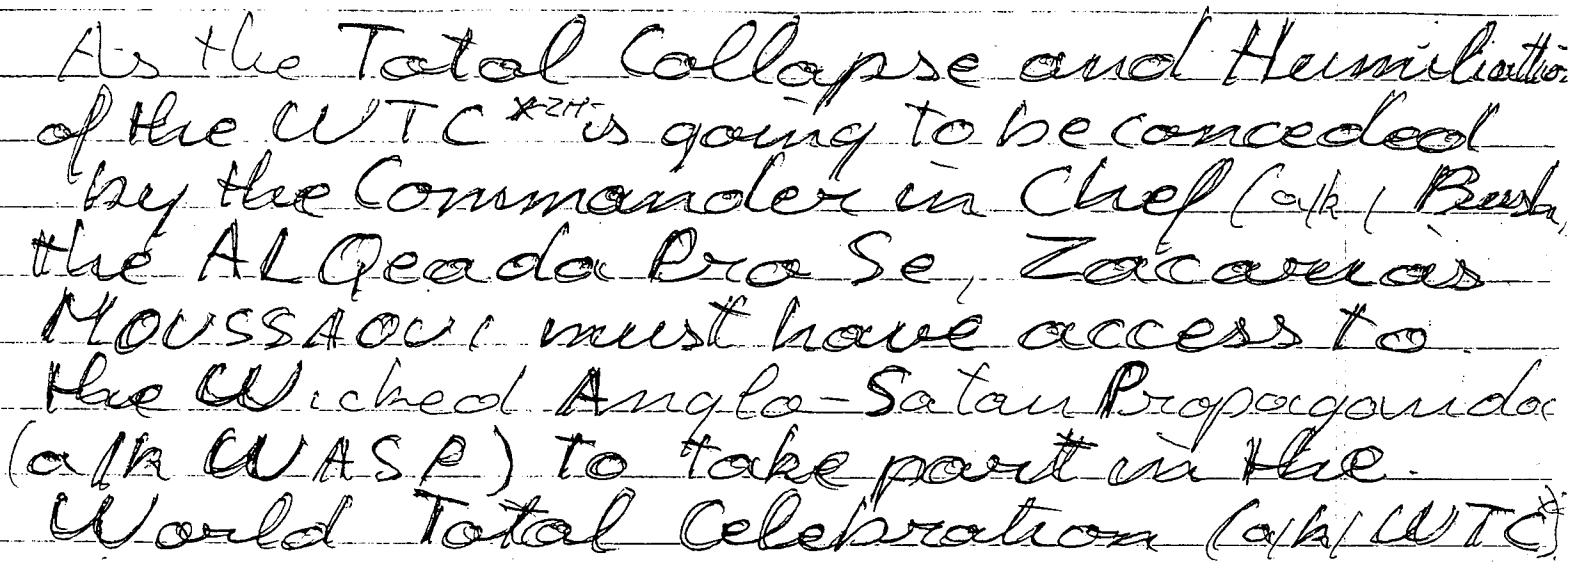 As the Total Collapse and Humiliation
of the WTC is going to be conceded
by the Commander in Chef (a/k/ Bush,
the AL Qeada Pro Se, Zacarias
MOUSSAOUI must have access to
the Wicked Anglo-Satan Propaganda
(a/k WASP) to take part in the
World Total Celebration (a/k/ WTC)